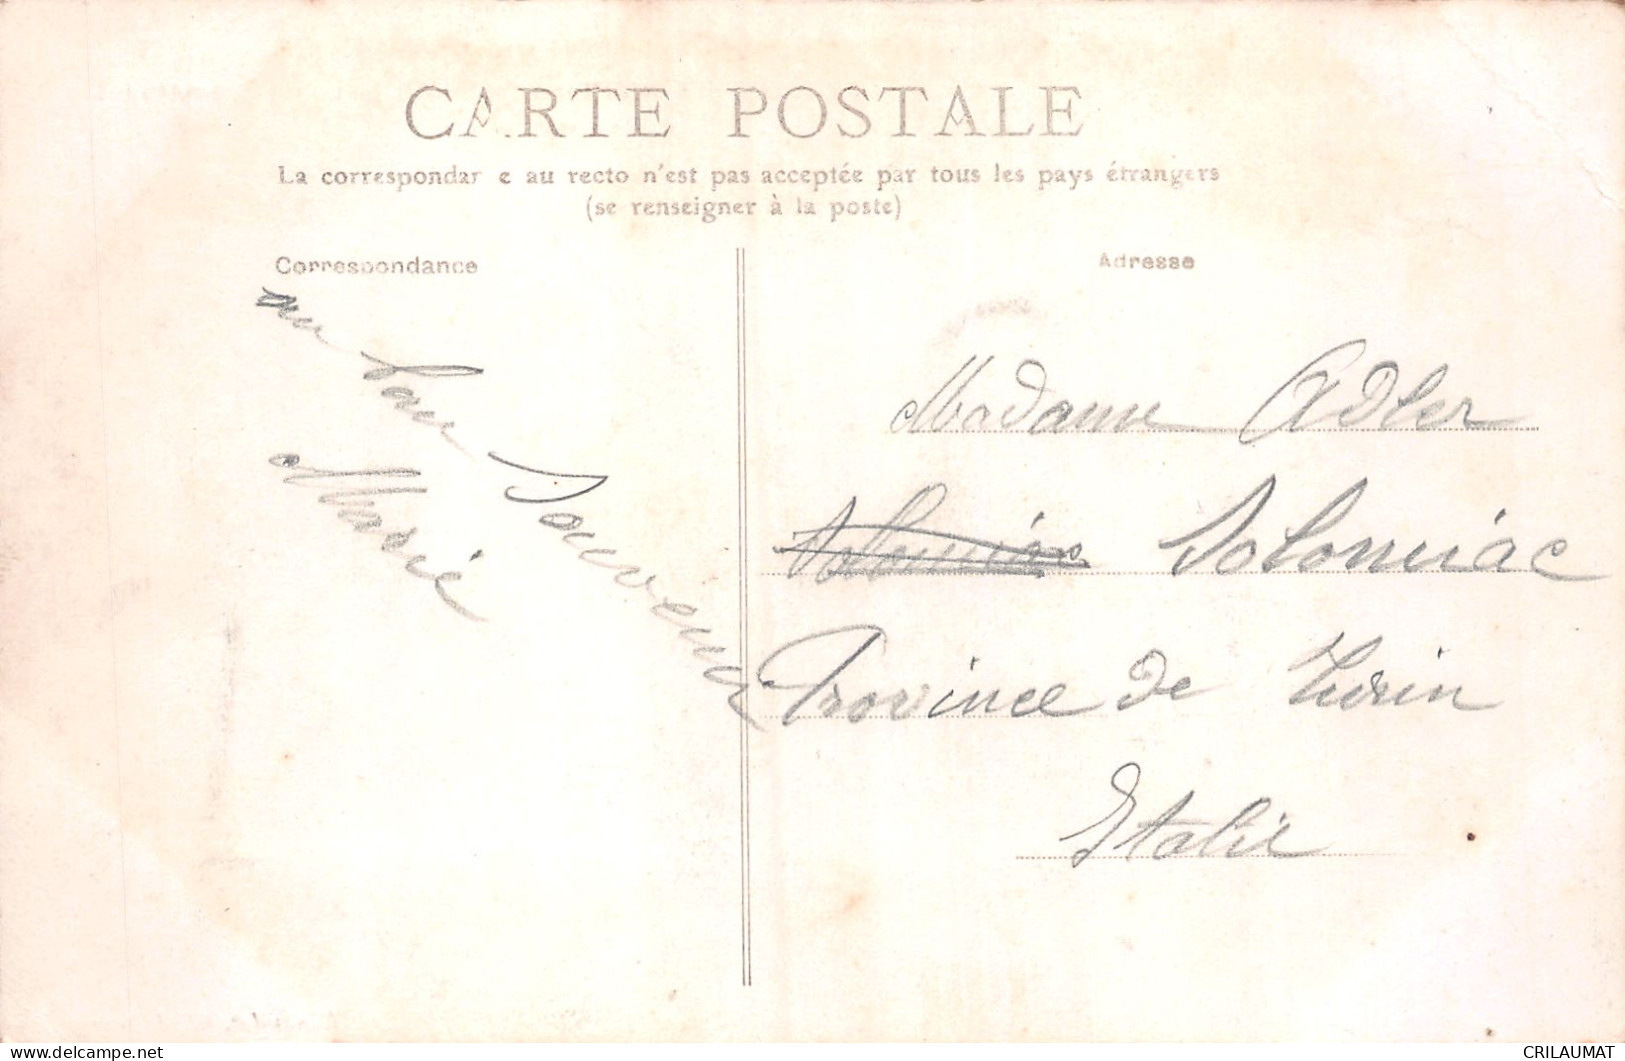 CARTE POSTALE
La correspondance au recto n'est pas acceptée par tous les pays étrangers
(se renseigner à la poste)
Correspondance
un bon Souvenir
Marie
Adresse
Madame Adler
Solomiac
Province de Turin
Italie
CRILAUMAT